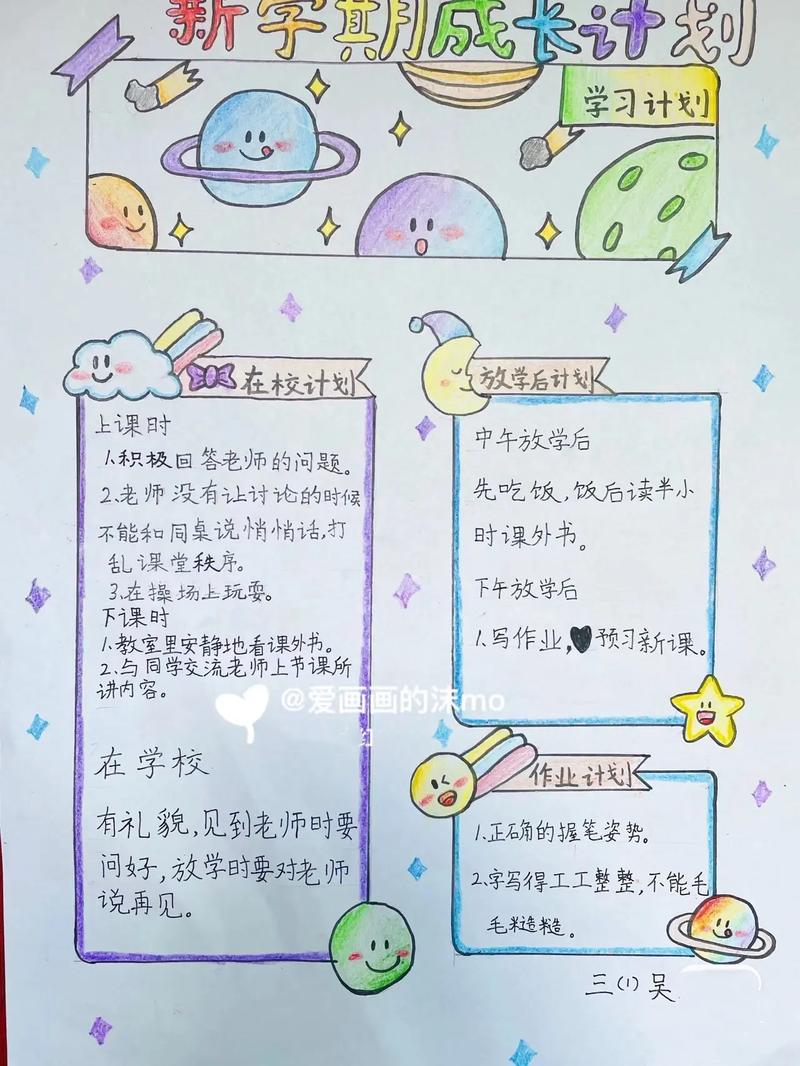 新学期成长计划
学习计划
在校计划
上课时
1.积极回答老师的问题。
2.老师没有让讨论的时候
不能和同桌说悄悄话,打
乱课堂秩序。
3.在操场上玩耍。
下课时
1.教室里安静地看课外书。
2.与同学交流老师上节课所
讲内容。
在学校
有礼貌,见到老师时要
问好,放学时要对老师
说再见。
放学后计划
中午放学后
先吃饭,饭后读半小
时课外书。
下午放学后
1.写作业,预习新课。
@爱画画的沫mo
作业计划
1.正确的握笔姿势。
2.字写得工工整整,不能毛
毛糙糙。
三(1)吴